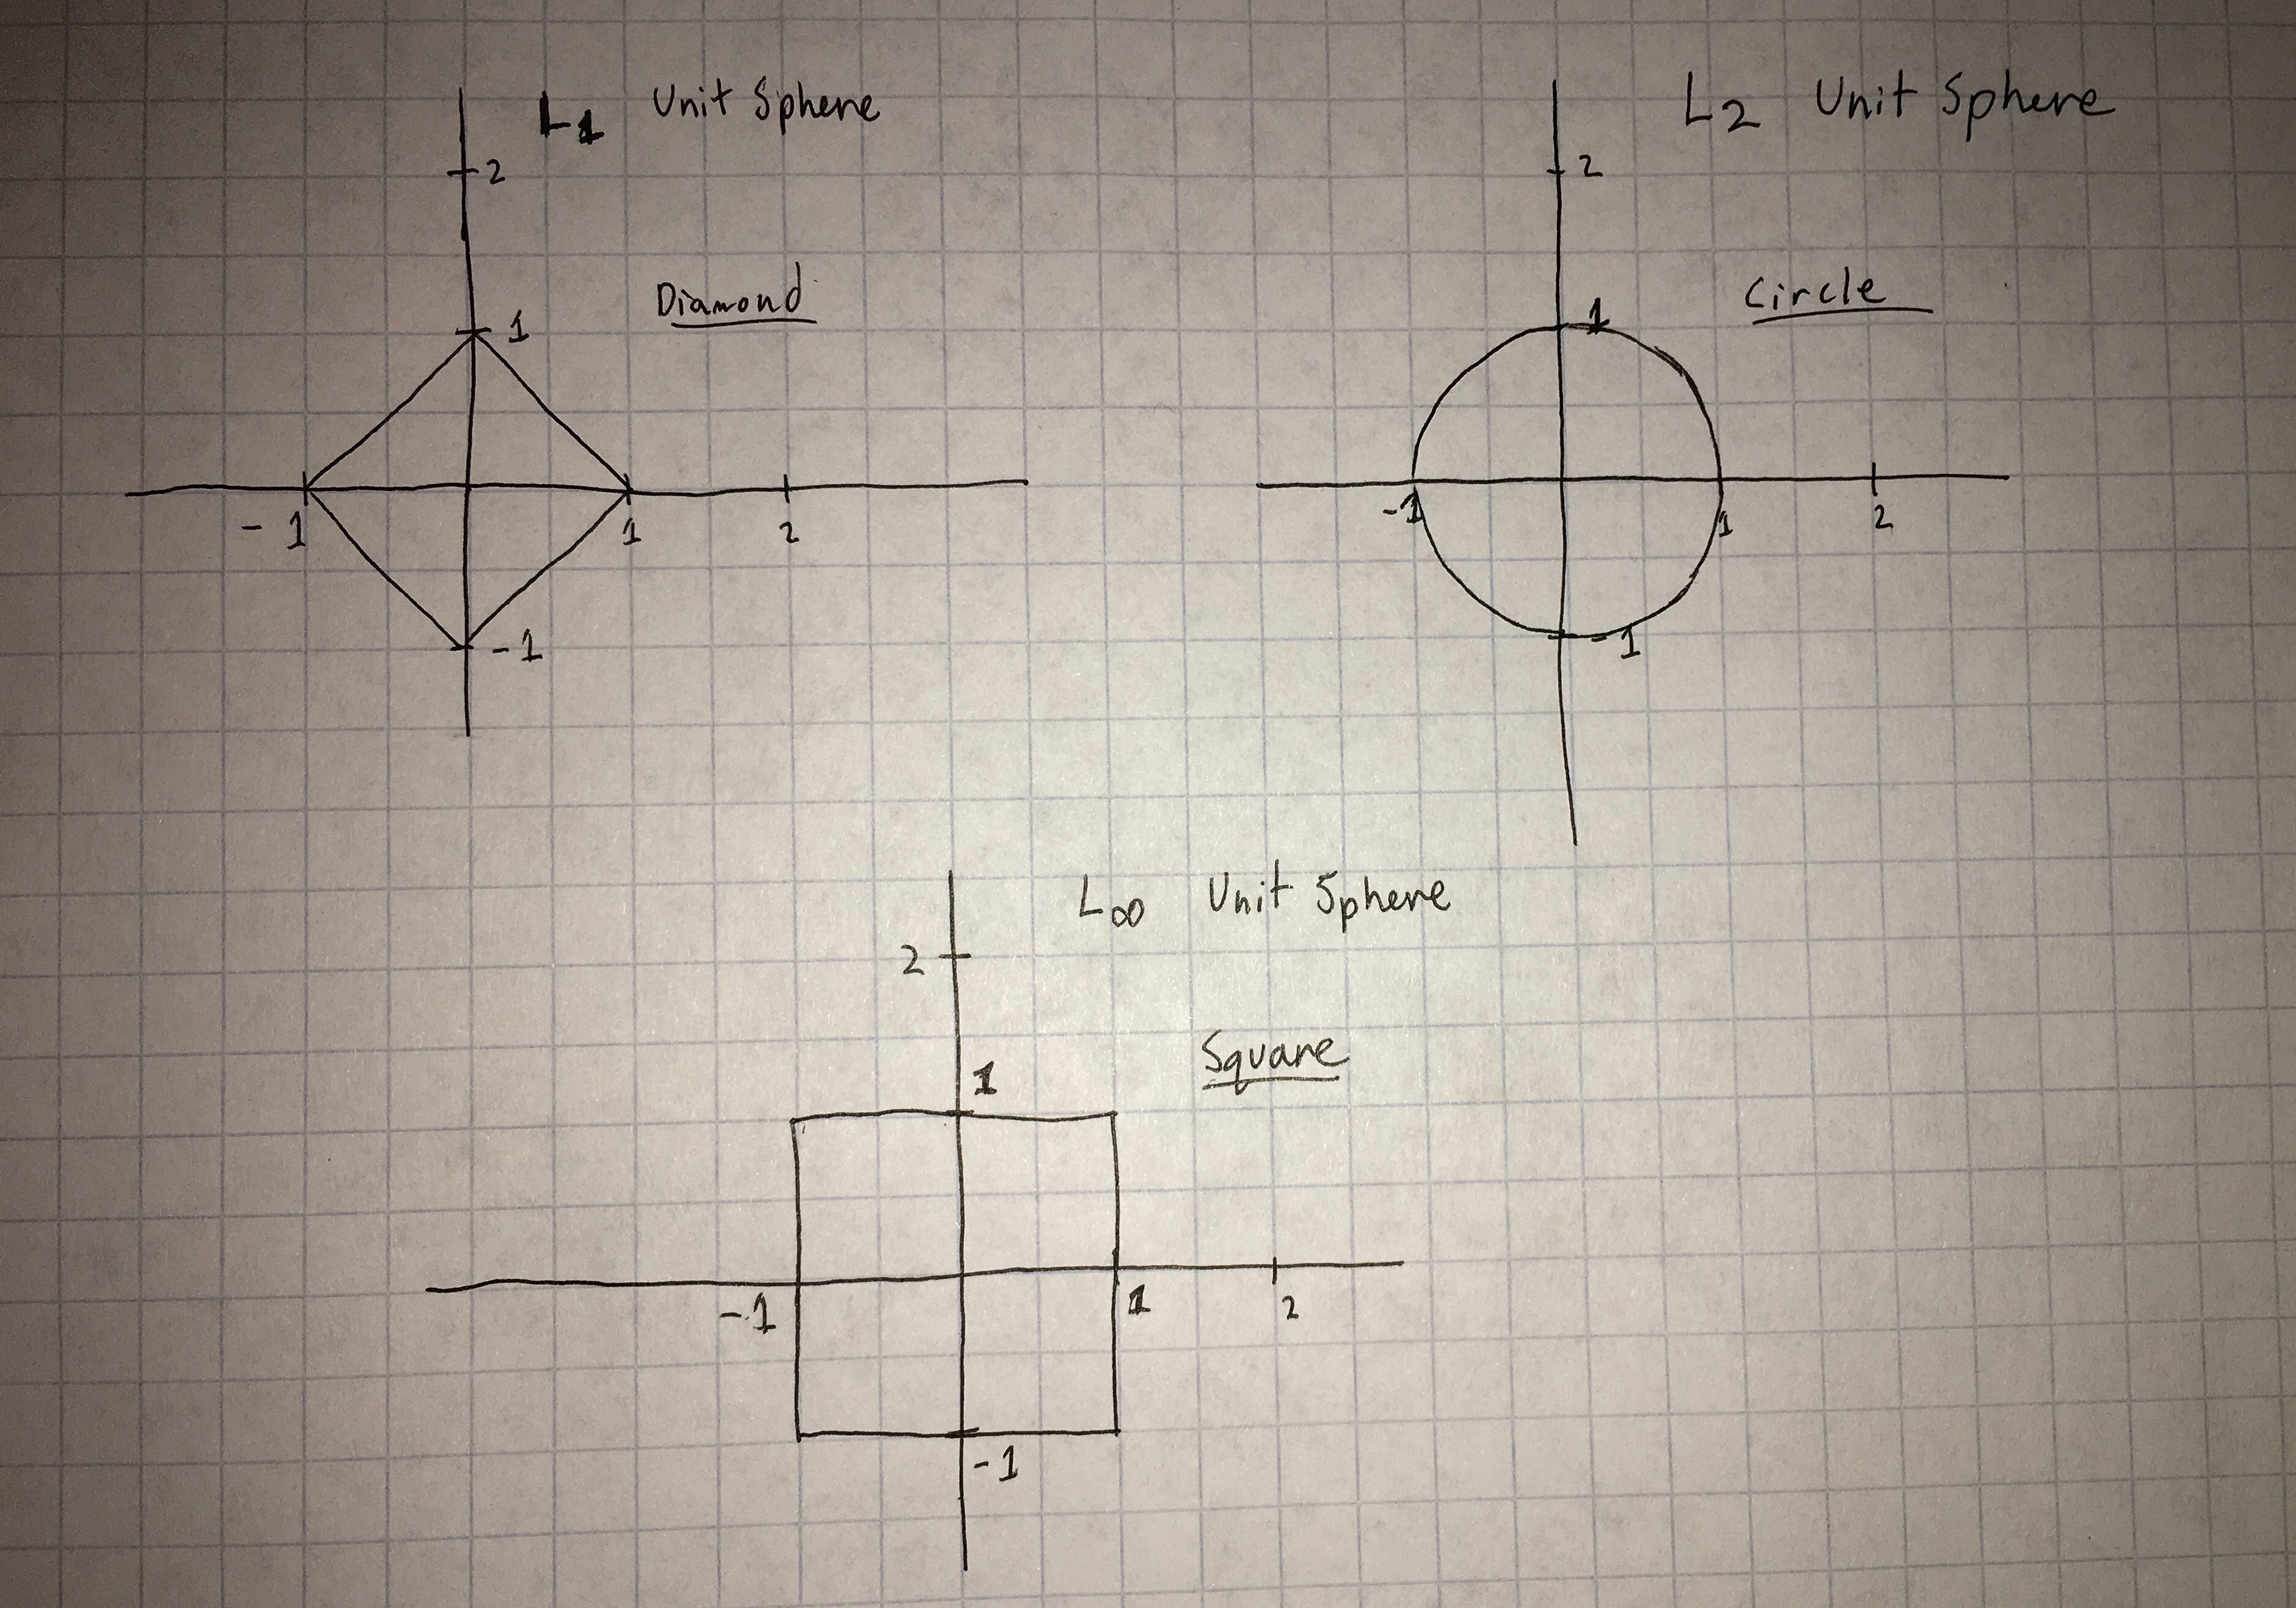 L1 Unit Sphere
2
Diamond
1
-1
1
2
-1
L2 Unit Sphere
2
Circle
1
-1
1
2
-1
L∞ Unit Sphere
2
Square
1
-1
1
2
-1